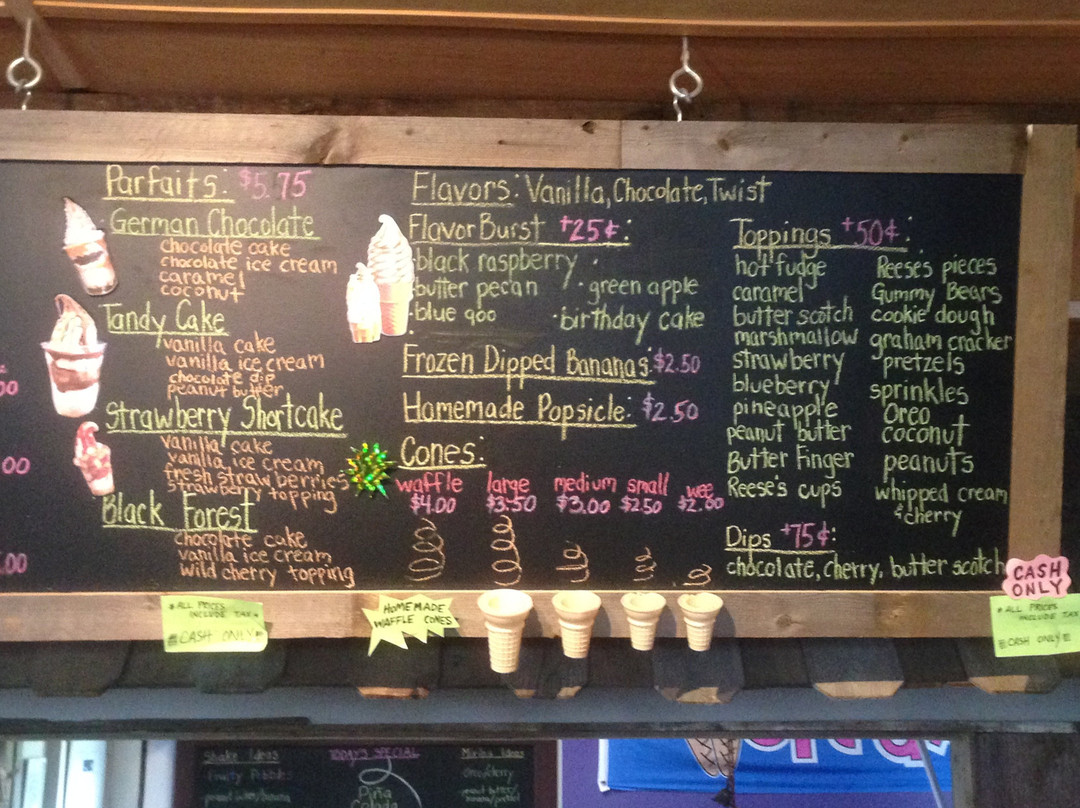 Parfaits: $5.75
German Chocolate
chocolate cake
chocolate ice cream
caramel
coconut
Tandy Cake
vanilla cake
vanilla ice cream
chocolate dip
peanut butter
Strawberry Shortcake
vanilla cake
vanilla ice cream
fresh strawberries
strawberry topping
Black Forest
chocolate cake
vanilla ice cream
wild cherry topping
00
00
.00
Flavors: Vanilla, Chocolate, Twist
Flavor Burst +25¢:
·black raspberry
·butter pecan ·green apple
·blue goo ·birthday cake
Frozen Dipped Bananas: $2.50
Homemade Popsicle: $2.50
Cones:
waffle large medium small wee
$4.00 $3.50 $3.00 $2.50 $2.00
Toppings +50¢:
hot fudge
caramel
butter scotch
marshmallow
strawberry
blueberry
pineapple
peanut butter
Butter Finger
Reese's cups
Reese's pieces
Gummy Bears
cookie dough
graham cracker
pretzels
sprinkles
Oreo
coconut
peanuts
whipped cream
& cherry
Dips +75¢:
chocolate, cherry, butter scotch
* ALL PRICES
INCLUDE TAX *
CASH ONLY
HOMEMADE
WAFFLE CONES
CASH
ONLY
* ALL PRICES
INCLUDE TAX
CASH ONLY
Shake Ideas
Fruity Pebbles
peanut butter/banana
TODAY'S SPECIAL
Piña
Colada
Mixles Ideas